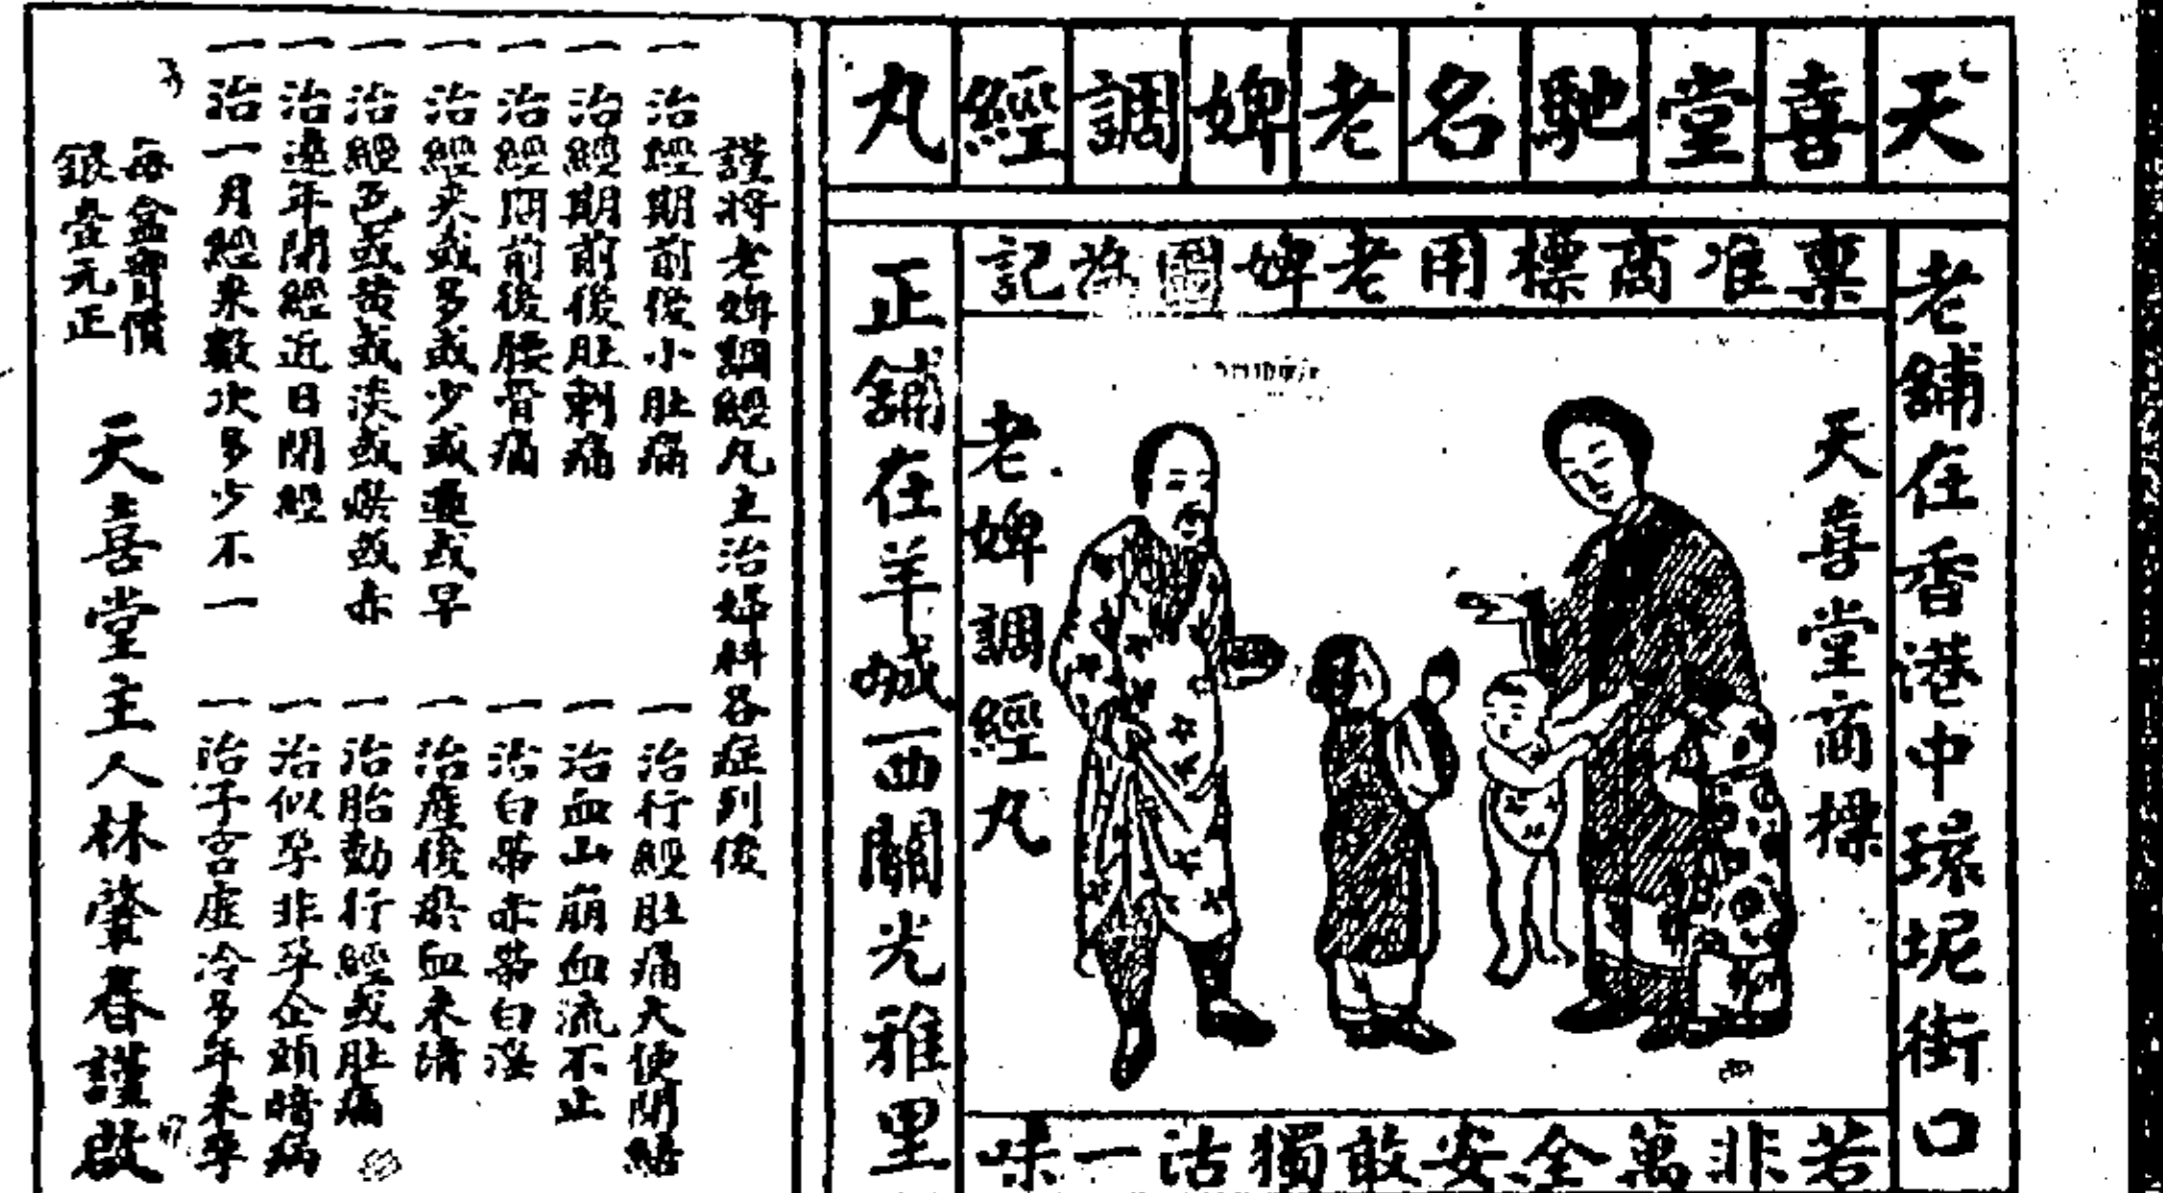 天喜堂馳名老婢調經丸
老舖在香港中環坭街口
稟准商標用老婢圖為記
天喜堂商標
老婢調經丸
若非萬全安敢獨沽一味
正舖在羊城西關光雅里
謹將老婢調經丸主治婦科各症列後
一治經期前後小肚痛
一治經期前後肚刺痛
一治經期前後腰骨痛
一治經來或多或少或遲或早
一治經色或黃或淡或瘀或赤
一治連年閉經近日閉經
一治一月經來數次多少不一
一治行經肚痛大便閉結
一治血山崩血流不止
一治白帶赤帶白淫
一治產後瘀血未清
一治胎動行經或肚痛
一治似孕非孕企頭暗病
一治子宮虛冷多年未孕
每盒實價
銀壹元正
天喜堂主人林肇春謹啟